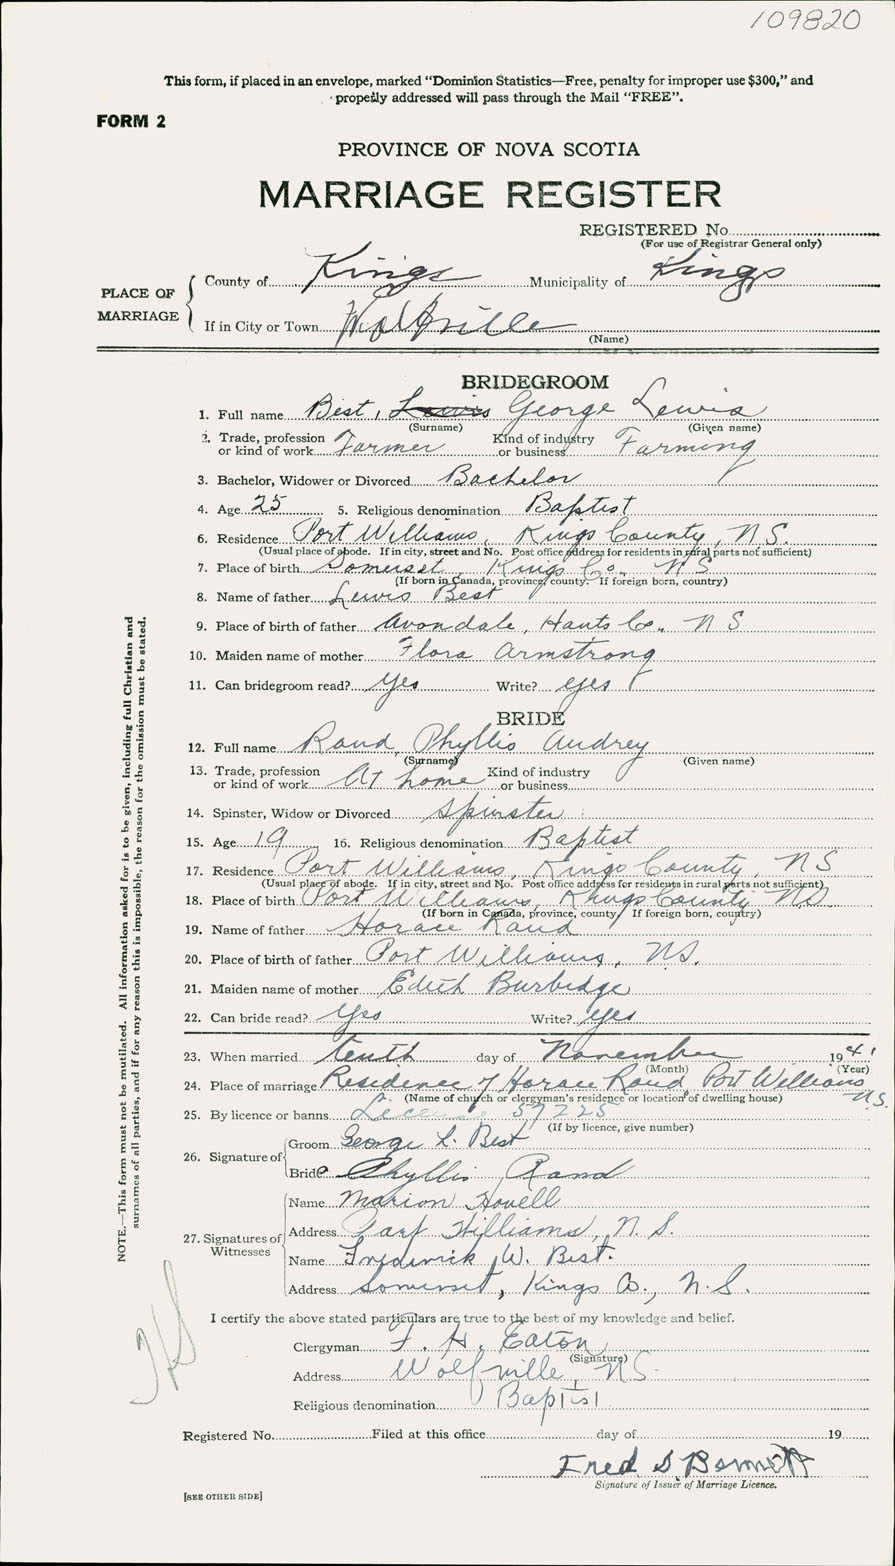 109820
This form, if placed in an envelope, marked "Dominion Statistics—Free, penalty for improper use $300," and
properly addressed will pass through the Mail "FREE".
FORM 2
PROVINCE OF NOVA SCOTIA
MARRIAGE REGISTER
REGISTERED No.
(For use of Registrar General only)
PLACE OF MARRIAGE
County of Kings Municipality of Kings
If in City or Town Wolfville
(Name)
BRIDEGROOM
1. Full name Best, Lewis George Lewis
(Surname) (Given name)
2. Trade, profession or kind of work Farmer Kind of industry or business Farming
3. Bachelor, Widower or Divorced Bachelor
4. Age 25 5. Religious denomination Baptist
6. Residence Port Williams, Kings County, N.S.
(Usual place of abode. If in city, street and No. Post office address for residents in rural parts not sufficient)
7. Place of birth Somerset, Kings Co. N S
(If born in Canada, province, county. If foreign born, country)
8. Name of father Lewis Best
9. Place of birth of father Avondale, Hants Co. N S
10. Maiden name of mother Flora Armstrong
11. Can bridegroom read? yes Write? yes
BRIDE
12. Full name Rand Phyllis Audrey
(Surname) (Given name)
13. Trade, profession or kind of work At home Kind of industry or business
14. Spinster, Widow or Divorced Spinster
15. Age 19 16. Religious denomination Baptist
17. Residence Port Williams, Kings County, N S
(Usual place of abode. If in city, street and No. Post office address for residents in rural parts not sufficient)
18. Place of birth Port Williams, Kings County NS
(If born in Canada, province, county If foreign born, country)
19. Name of father Horace Rand
20. Place of birth of father Port Williams, NS.
21. Maiden name of mother Edith Burbidge
22. Can bride read? yes Write? yes
23. When married tenth day of November 1941
(Month) (Year)
24. Place of marriage Residence of Horace Rand, Port Williams N.S.
(Name of church or clergyman's residence or location of dwelling house)
25. By licence or banns License 57225
(If by licence, give number)
26. Signature of
Groom George L. Best
Bride Phyllis Rand
27. Signatures of Witnesses
Name Marion
Address Port Williams, N. S.
Name Frederick W. Best.
Address Somerset, Kings Co., N.S.
I certify the above stated particulars are true to the best of my knowledge and belief.
Clergyman F. H. Eaton
(Signature)
Address Wolfville, NS.
Religious denomination Baptist
Registered No. Filed at this office day of 19
Fred S
Signature of Issuer of Marriage Licence.
[SEE OTHER SIDE]
NOTE.—This form must not be mutilated. All information asked for is to be given, including full Christian and
surnames of all parties, and if for any reason this is impossible, the reason for the omission must be stated.